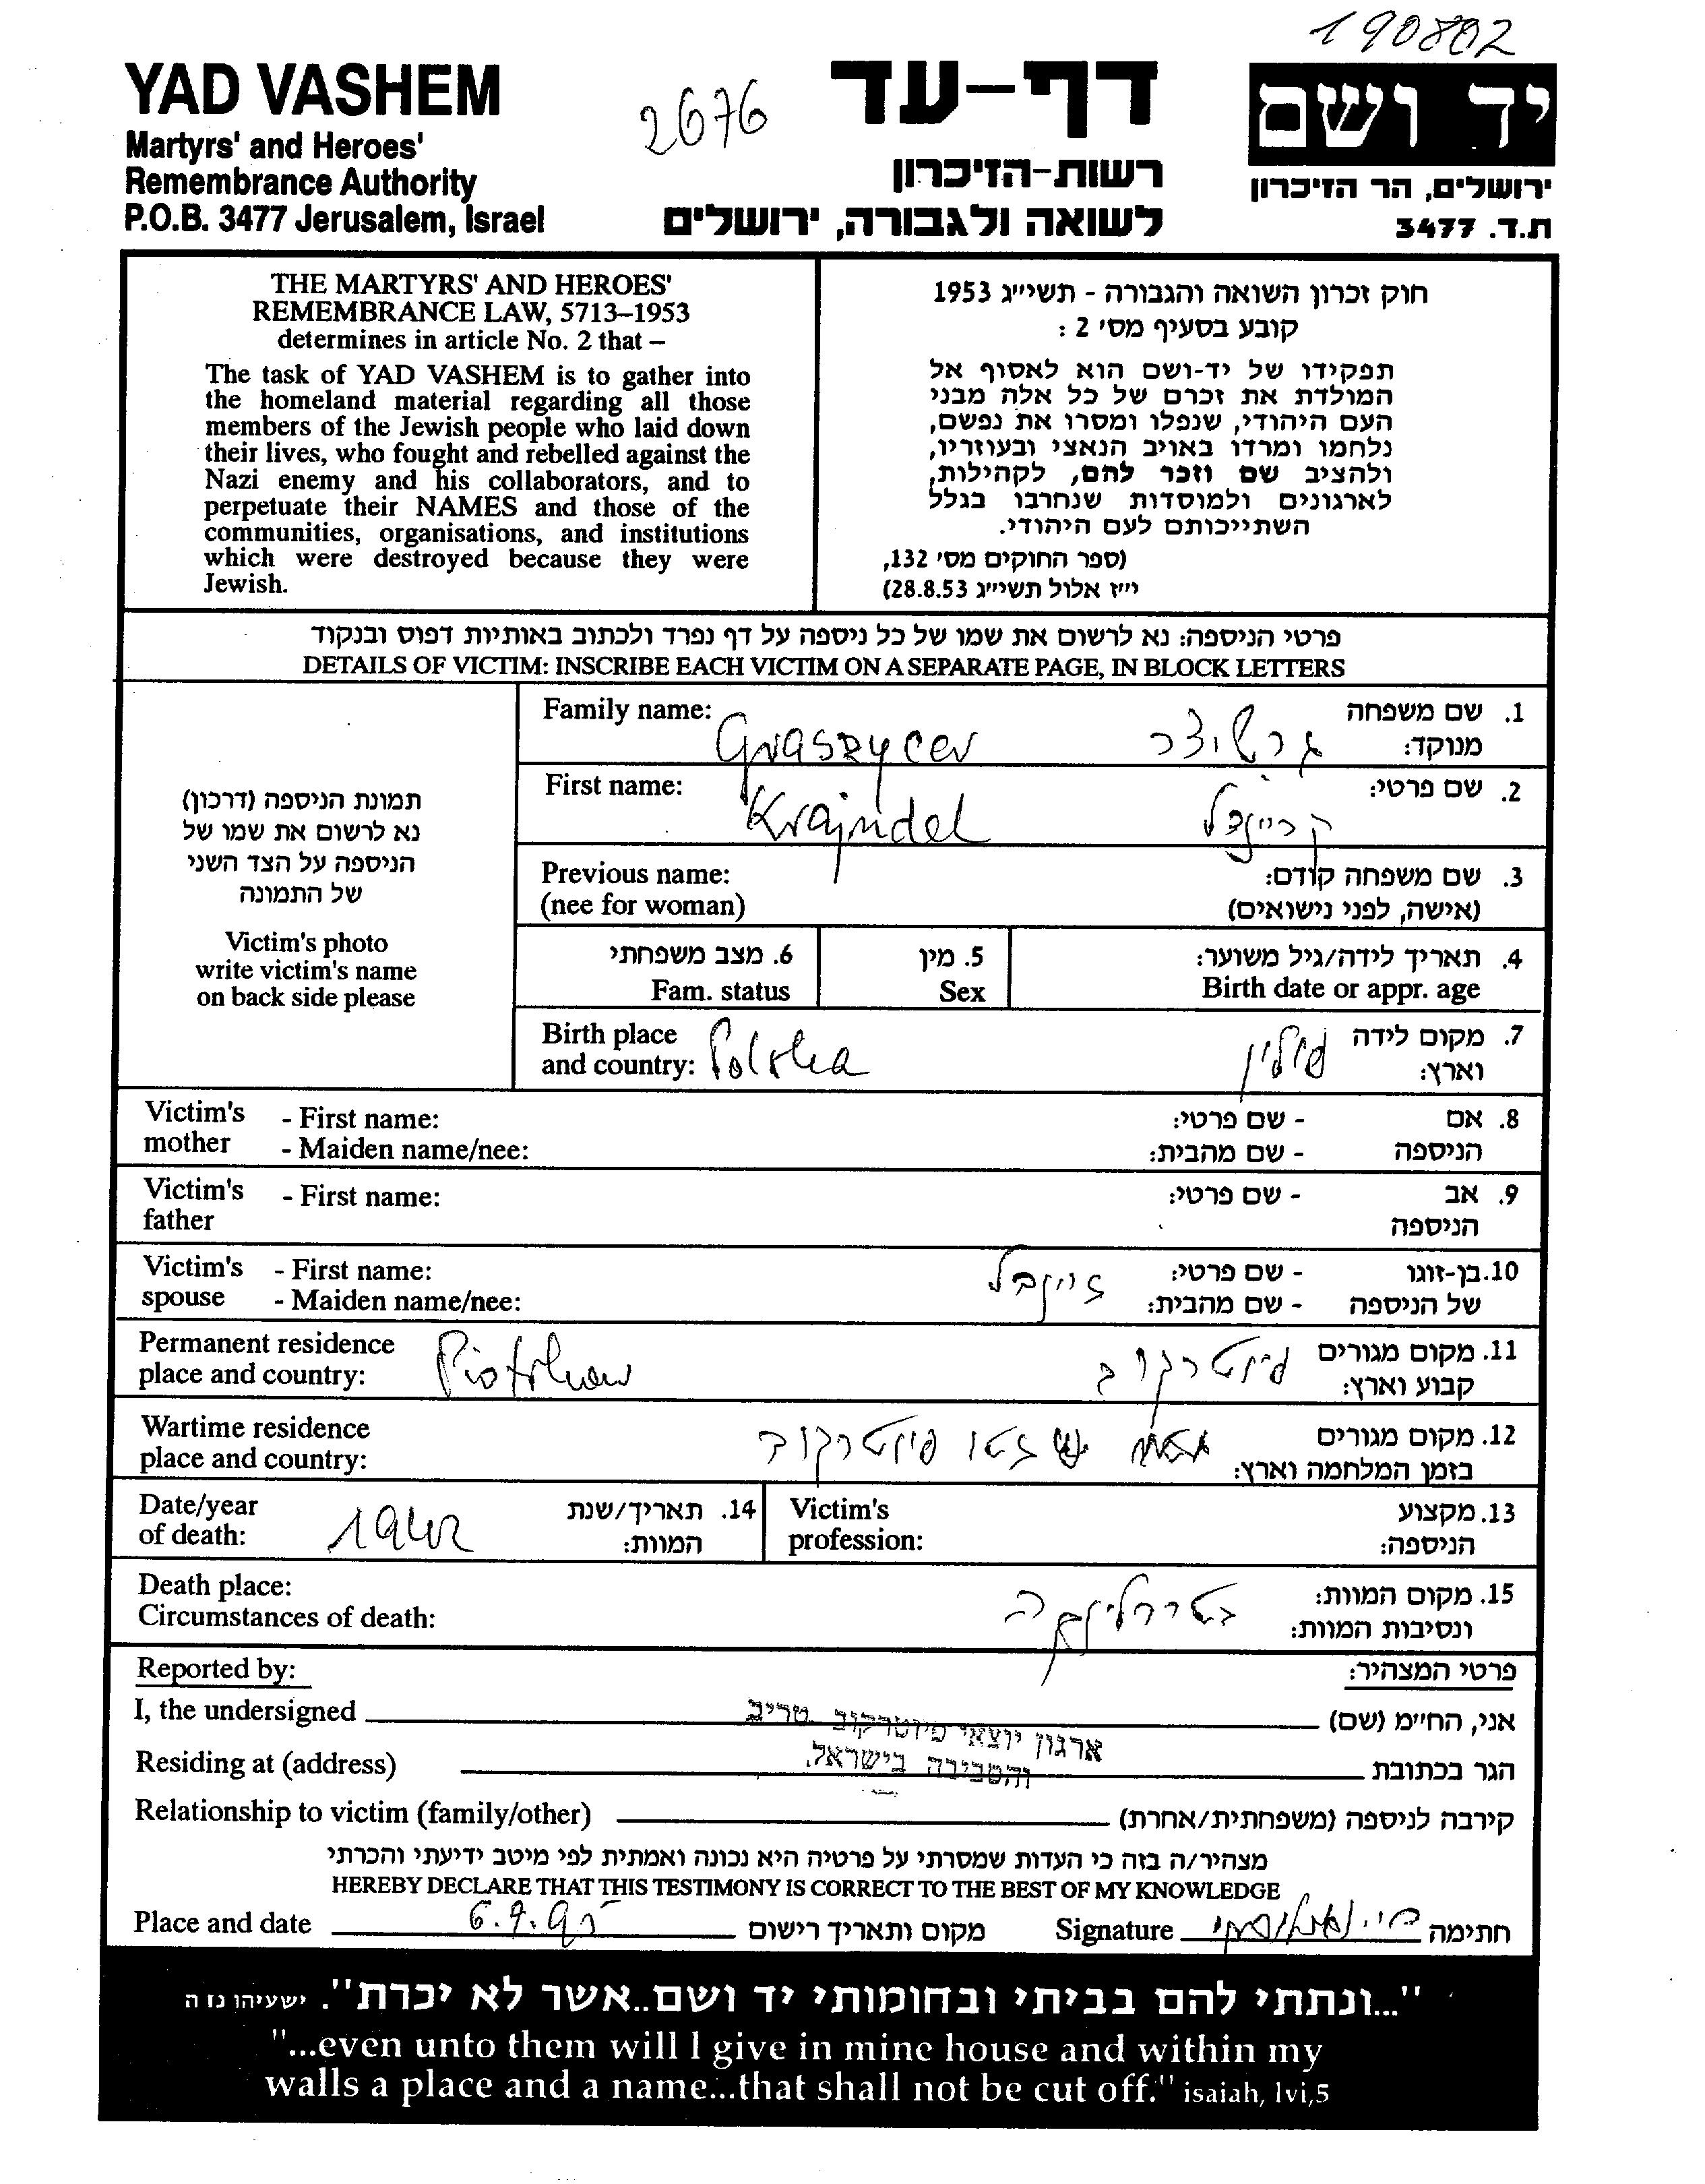 190802
YAD VASHEM
Martyrs' and Heroes'
Remembrance Authority
P.O.B. 3477 Jerusalem, Israel
2676
דף-עד
רשות-הזיכרון
לשואה ולגבורה, ירושלים
יד ושם
ירושלים, הר הזיכרון
ת.ד. 3477
THE MARTYRS' AND HEROES'
REMEMBRANCE LAW, 5713–1953
determines in article No. 2 that –
The task of YAD VASHEM is to gather into
the homeland material regarding all those
members of the Jewish people who laid down
their lives, who fought and rebelled against the
Nazi enemy and his collaborators, and to
perpetuate their NAMES and those of the
communities, organisations, and institutions
which were destroyed because they were
Jewish.
חוק זכרון השואה והגבורה - תשי״ג 1953
קובע בסעיף מס׳ 2 :
תפקידו של יד-ושם הוא לאסוף אל
המולדת את זכרם של כל אלה מבני
העם היהודי, שנפלו ומסרו את נפשם,
נלחמו ומרדו באויב הנאצי ובעוזריו,
ולהציב שם וזכר להם, לקהילות,
לארגונים ולמוסדות שנחרבו בגלל
השתייכותם לעם היהודי.
(ספר החוקים מס׳ 132,
י״ז אלול תשי״ג 28.8.53)
פרטי הניספה: נא לרשום את שמו של כל ניספה על דף נפרד ולכתוב באותיות דפוס ובנקוד
DETAILS OF VICTIM: INSCRIBE EACH VICTIM ON A SEPARATE PAGE, IN BLOCK LETTERS
תמונת הניספה (דרכון)
נא לרשום את שמו של
הניספה על הצד השני
של התמונה
Victim's photo
write victim's name
on back side please
Family name: Graszycer גרשיצר 1. שם משפחה
מנוקד:
First name: Krajndel קריינדל 2. שם פרטי:
Previous name: 3. שם משפחה קודם:
(nee for woman) (אישה, לפני נישואים)
6. מצב משפחתי 5. מין 4. תאריך לידה/גיל משוער:
Fam. status Sex Birth date or appr. age
Birth place 7. מקום לידה
and country: Polska פולין וארץ:
Victim's - First name: - שם פרטי: 8. אם
mother - Maiden name/nee: - שם מהבית: הניספה
Victim's - First name: - שם פרטי: 9. אב
father הניספה
Victim's - First name: זיינבל - שם פרטי: 10. בן-זוגו
spouse - Maiden name/nee: - שם מהבית: של הניספה
Permanent residence 11. מקום מגורים
place and country: Piotrkow פיוטרקוב קבוע וארץ:
Wartime residence גטו פיוטרקוב 12. מקום מגורים
place and country: בזמן המלחמה וארץ:
Date/year 14. תאריך/שנת
of death: 1942 המוות:
Victim's 13. מקצוע
profession: הניספה:
Death place: בטרבלינקה 15. מקום המוות:
Circumstances of death: ונסיבות המוות:
Reported by: פרטי המצהיר:
I, the undersigned אני, החיימ (שם)
ארגון יוצאי פיוטרקוב טריב
והסביבה בישראל.
Residing at (address) הגר בכתובת
Relationship to victim (family/other) קירבה לניספה (משפחתית/אחרת)
מצהיר/ה בזה כי העדות שמסרתי על פרטיה היא נכונה ואמתית לפי מיטב ידיעתי והכרתי
HEREBY DECLARE THAT THIS TESTIMONY IS CORRECT TO THE BEST OF MY KNOWLEDGE
Place and date 6.9.95 מקום ותאריך רישום Signature חתימה
"...ונתתי להם בביתי ובחומותי יד ושם..אשר לא יכרת". ישעיהו נו ה
"...even unto them will I give in mine house and within my
walls a place and a name...that shall not be cut off." isaiah, lvi,5